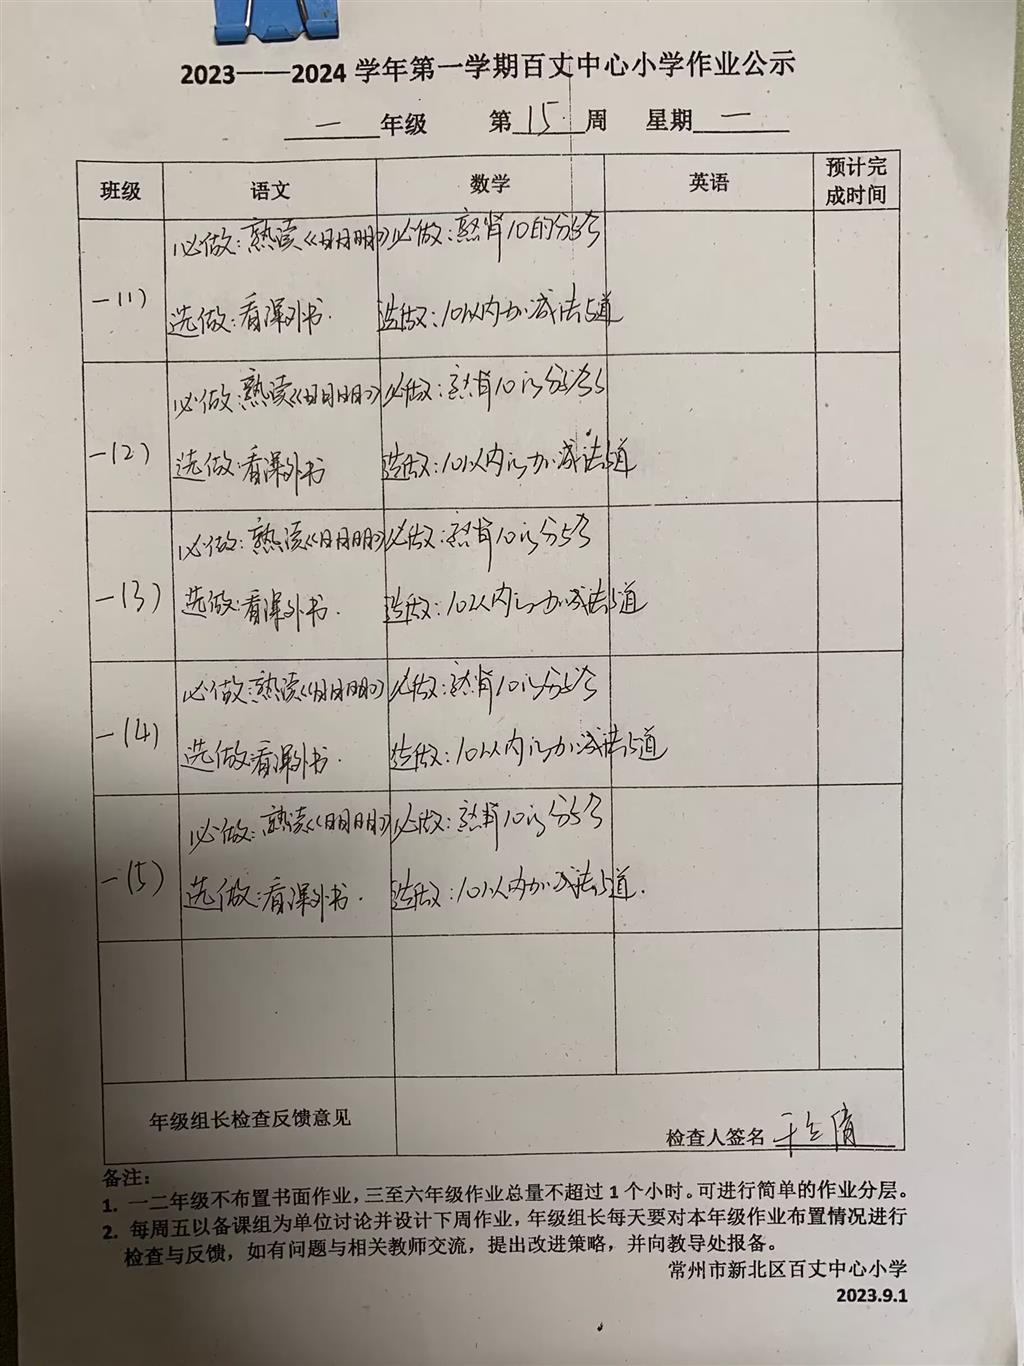 2023——2024 学年第一学期百丈中心小学作业公示
一 年级 第 15 周 星期 一
班级 语文 数学 英语 预计完成时间
必做：熟读《日月明》 必做：熟背10的分与合
一(1)
选做：看课外书. 选做：10以内加减法5道
必做：熟读《日月明》 必做：熟背10的分与合
一(2)
选做：看课外书 选做：10以内的加减法5道
必做：熟读《日月明》 必做：熟背10的分与合
一(3)
选做：看课外书. 选做：10以内的加减法5道
必做：熟读《日月明》 必做：熟背10的分与合
一(4)
选做：看课外书. 选做：10以内的加减法5道
必做：熟读《日月明》 必做：熟背10的分与合
一(5)
选做：看课外书. 选做：10以内加减法5道.
年级组长检查反馈意见
检查人签名
备注：
1. 一二年级不布置书面作业，三至六年级作业总量不超过 1 个小时。可进行简单的作业分层。
2. 每周五以备课组为单位讨论并设计下周作业，年级组长每天要对本年级作业布置情况进行
检查与反馈，如有问题与相关教师交流，提出改进策略，并向教导处报备。
常州市新北区百丈中心小学
2023.9.1